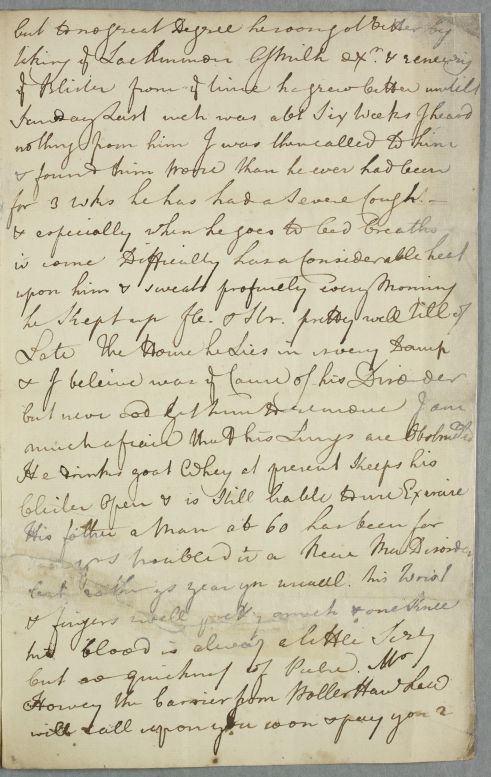 but to no great Degree he soon got better by
taking of Lac Ammon: Asmilk &xn. & renewing
of Blister from yt time he grew better untill
Sunday Last wch was abt Six Weeks I heard
nothing from him I was then called to him
& found him worse than he ever had been
for 3 wks he has had a Severe Cough. –
& especially when he goes to bed breaths
wt some Difficulty has a Considerable heat
upon him & sweats profusely every Morning
he Kept up fle. & Str. pretty well till of
Late The House he Lies in is very Damp
& I beleive was ye Cause of his Disorder
but never cod get him to remove I am
much afraid that his Lungs are Obstructed
He drinks goat Whey at present Keeps his
blister Open & is Still liable to use Exercise
His father a Man abt 60 has been for
yrs troubled wt a Rheumat Disorder
last rather ys year yn usuall. his Wrist
& fingers swell pretty much & one Knee
his blood is always a little Sizy
but no quickness of Pulse. Mr
Howey the Carrier from Woller Haw head
will call upon you soon & pay you